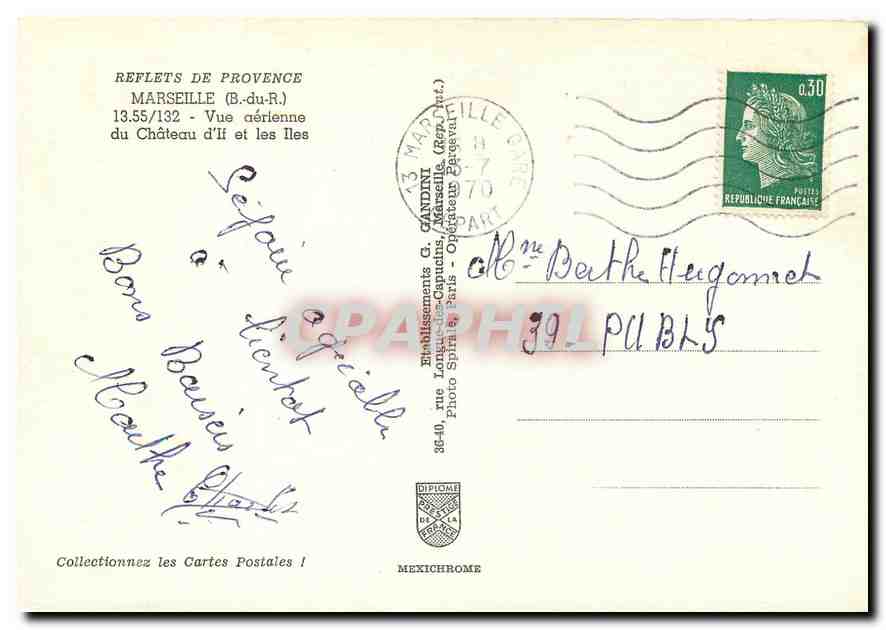 REFLETS DE PROVENCE
MARSEILLE (B.-du-R.)
13.55/132 - Vue aérienne
du Château d'If et les Iles
Séjour agréable
à bientôt
Bons Baisers
Marthe
Collectionnez les Cartes Postales !
Etablissements G. GANDINI
36-40, rue Longue-des-Capucins, Marseille (Rep. Int.)
Photo Spirale, Paris - Opérateur Perceval
CPAPHIL
DIPLOME
PRESTIGE
DE LA
FRANCE
MEXICHROME
13 MARSEILLE GARE
-7
1970
DEPART
0,30
POSTES
REPUBLIQUE FRANÇAISE
Mme Berthe Hugonnet
39 - PUBLY